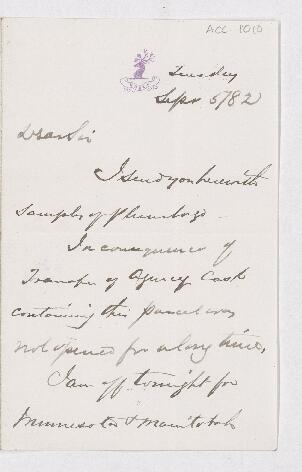 ACC 1010
Tuesday
Sept 5/82
Dear Sir
I send you herewith
samples of Plumbago -
In consequence of
Transfer of Agency Cask
containing this parcel was
not opened for a long time,
I am off tonight for
Minnesota & Manitobah